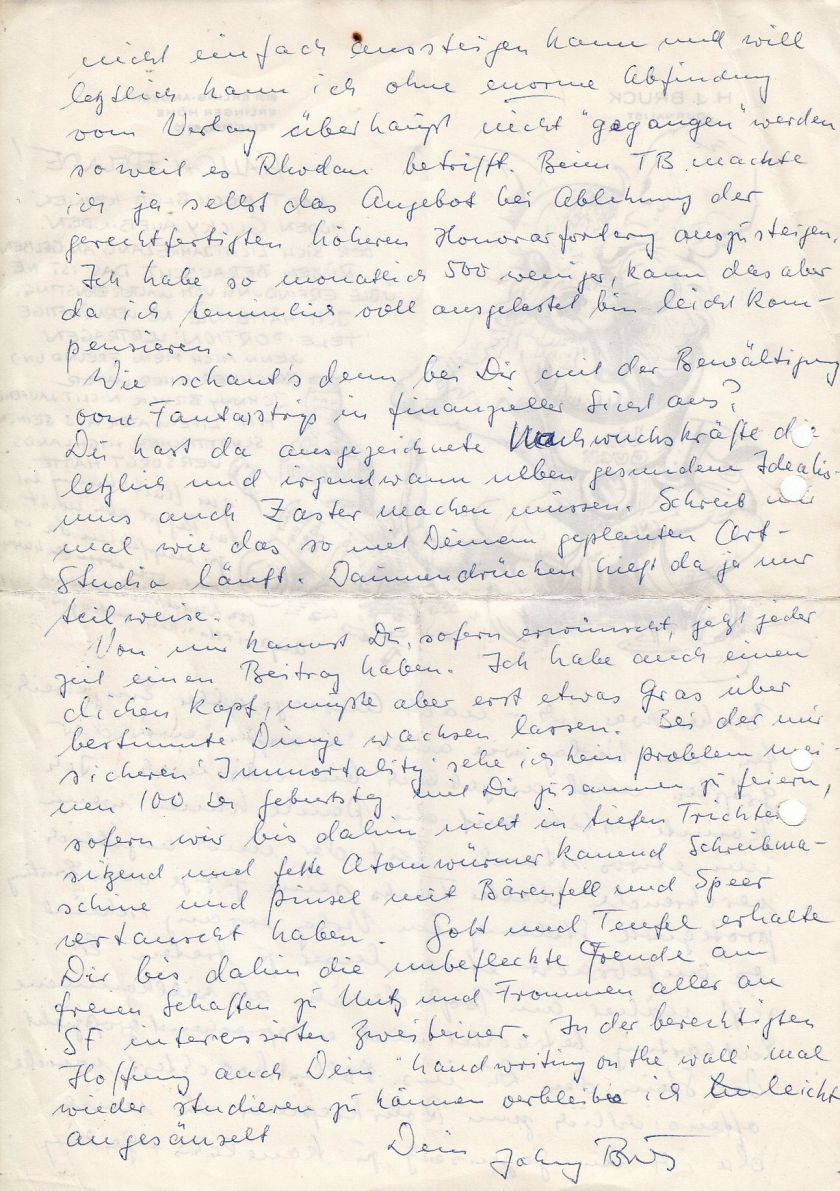 nicht einfach aussteigen kann und will
letztlich kann ich ohne enorme Abfindung
vom Verlag überhaupt nicht "gegangen" werden
soweit es Rhodan betrifft. Beim TB machte
ich ja selbst das Angebot bei Ablehnung der
gerechtfertigten höheren Honorarforderung auszusteigen.
Ich habe so monatlich 500 weniger, kann das aber
da ich terminlich voll ausgelastet bin leicht kom-
pensieren.
Wie schaut's denn bei Dir mit der Bewältigung
vom Fantastrips in finanzieller Sicht aus?
Du hast da ausgezeichnete Nachwuchskräfte die
letzlich und irgendwann neben gesundem Idealis-
mus auch Zaster machen müssen. Schreib mir
mal wie das so mit Deinem geplanten Art-
Studio läuft. Daumendrücken hieft da ja nur
teilweise.
Von mir kannst Du, sofern erwünscht, jetzt jeder
zeit einen Beitrag haben. Ich habe auch einen
dicken Kopf, mußte aber erst etwas Gras über
bestimmte Dinge wachsen lassen. Bei der mir
sicheren "Immortality" sehe ich kein problem mei-
nen 100 sten geburtstag mit Dir zusammen zu feiern,
sofern wir bis dahin nicht in tiefen Trichter
sitzend und fette Atomwürmer kauend Schreibma-
schine und pinsel mit Bärenfell und Speer
vertauscht haben. Gott und Teufel erhalte
Dir bis dahin die unbefleckte Freude am
freien Schaffen zu Nutz und Frommen aller an
SF interessierten Zweibeiner. In der berechtigten
Hoffnung auch Dein "handwriting on the wall" mal
wieder studieren zu können verbleibe ich leicht
angesäuselt Dein Johnny Bruck